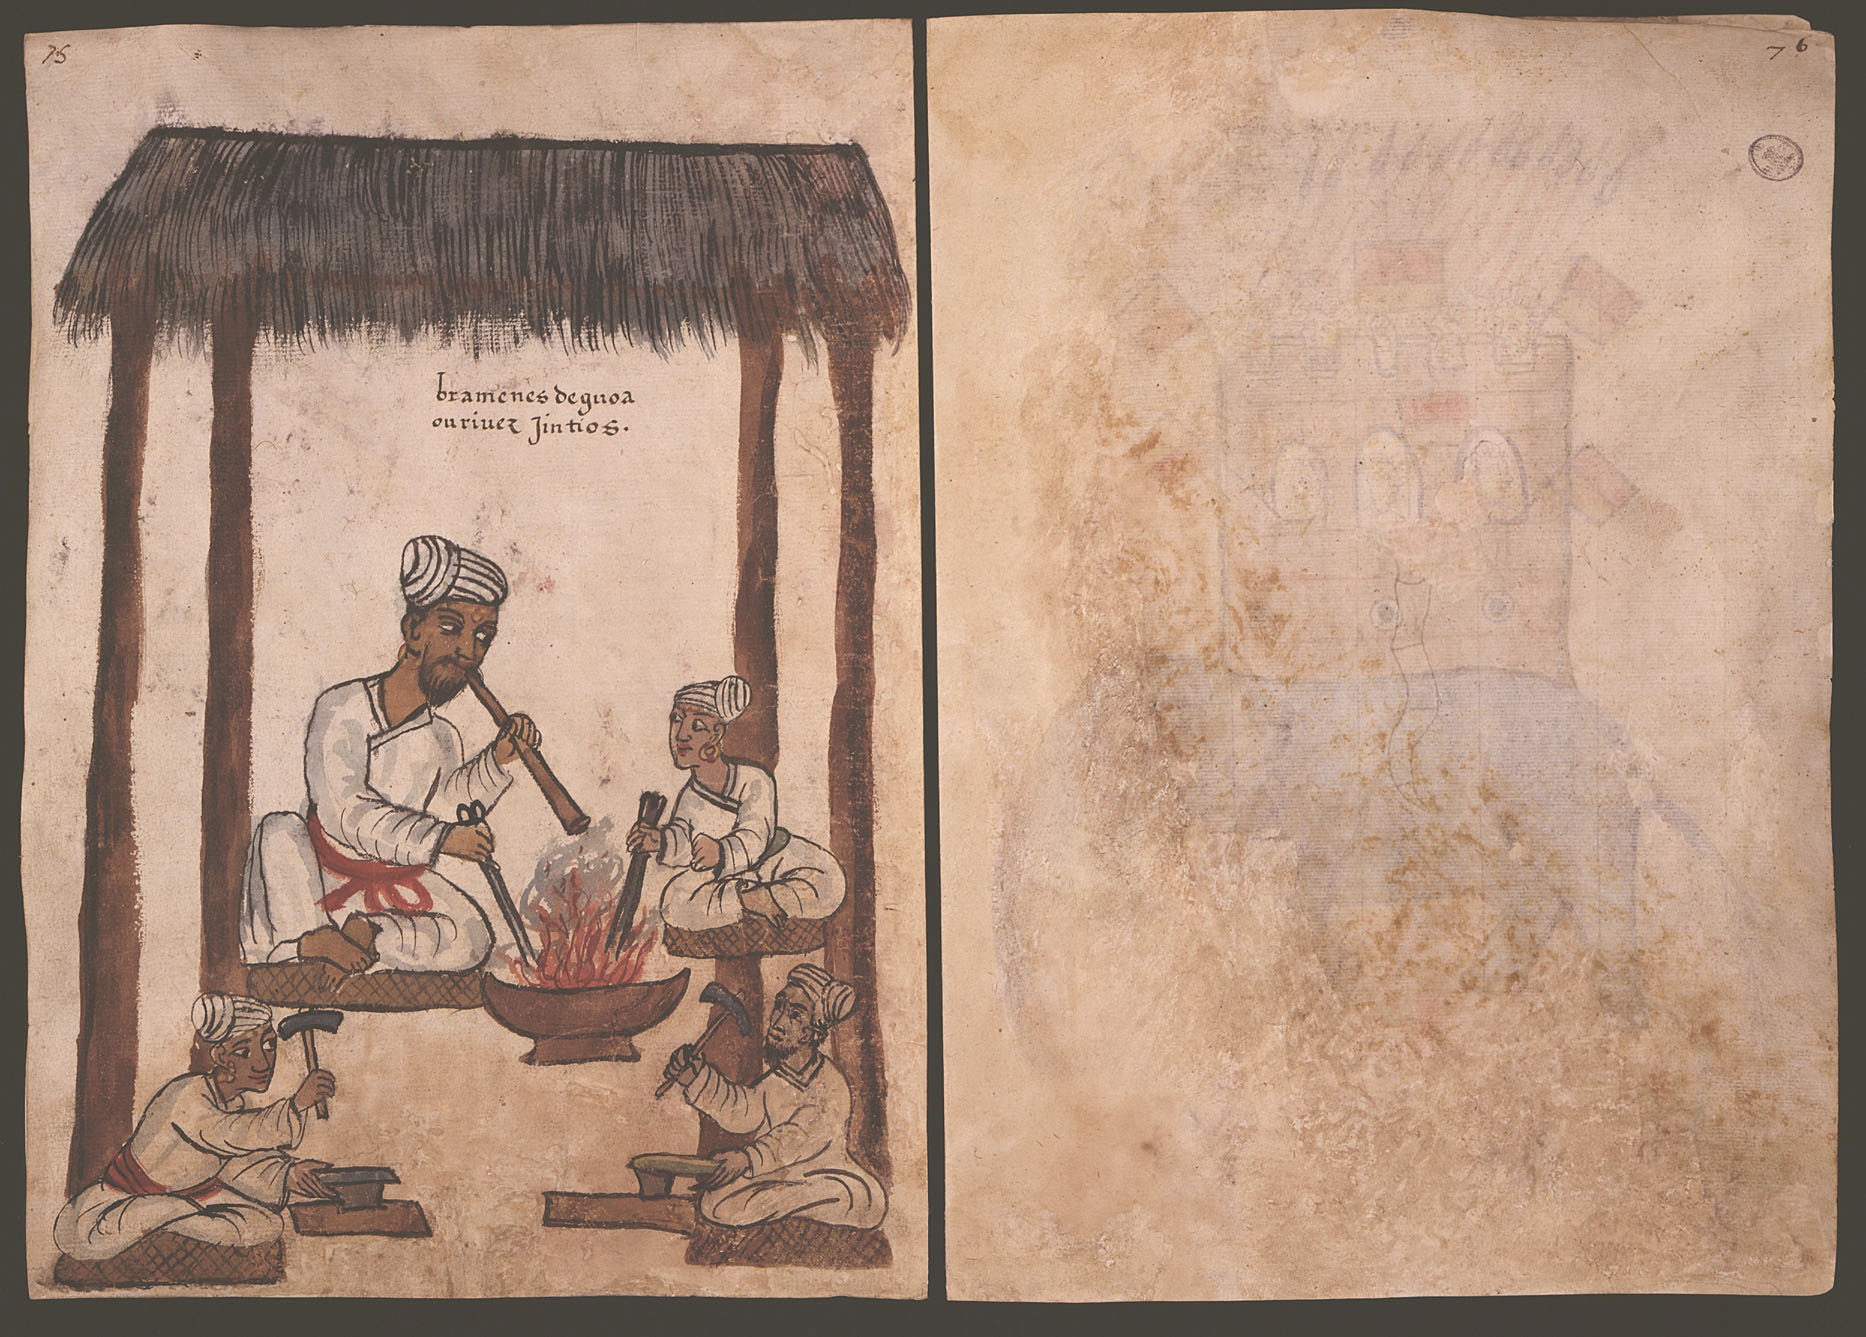 75
bramenes deguoa
ouriuez Jintios.
76